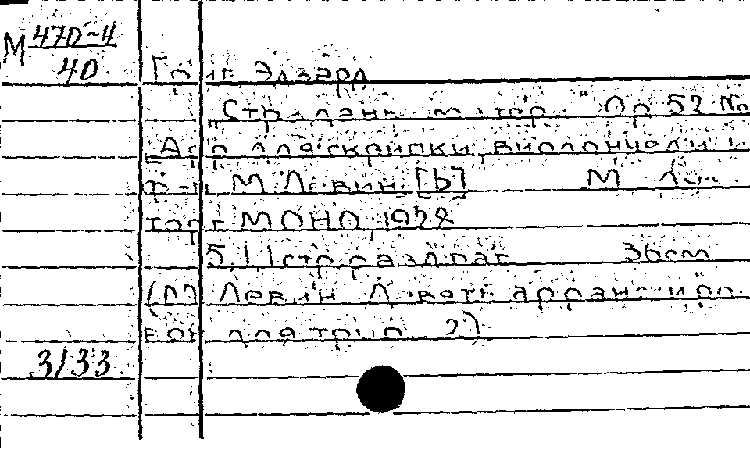 М 470-4
40
Григ Эдвард
"Страдания матери" Op 52 №
Арр для скрипки, виолончели и
ф-п М Левин [b] М
торг МОНО 1928
5, 11 стр разд паг 36см
(М Левин Девять аранжиро
вок для трио 2)
3133